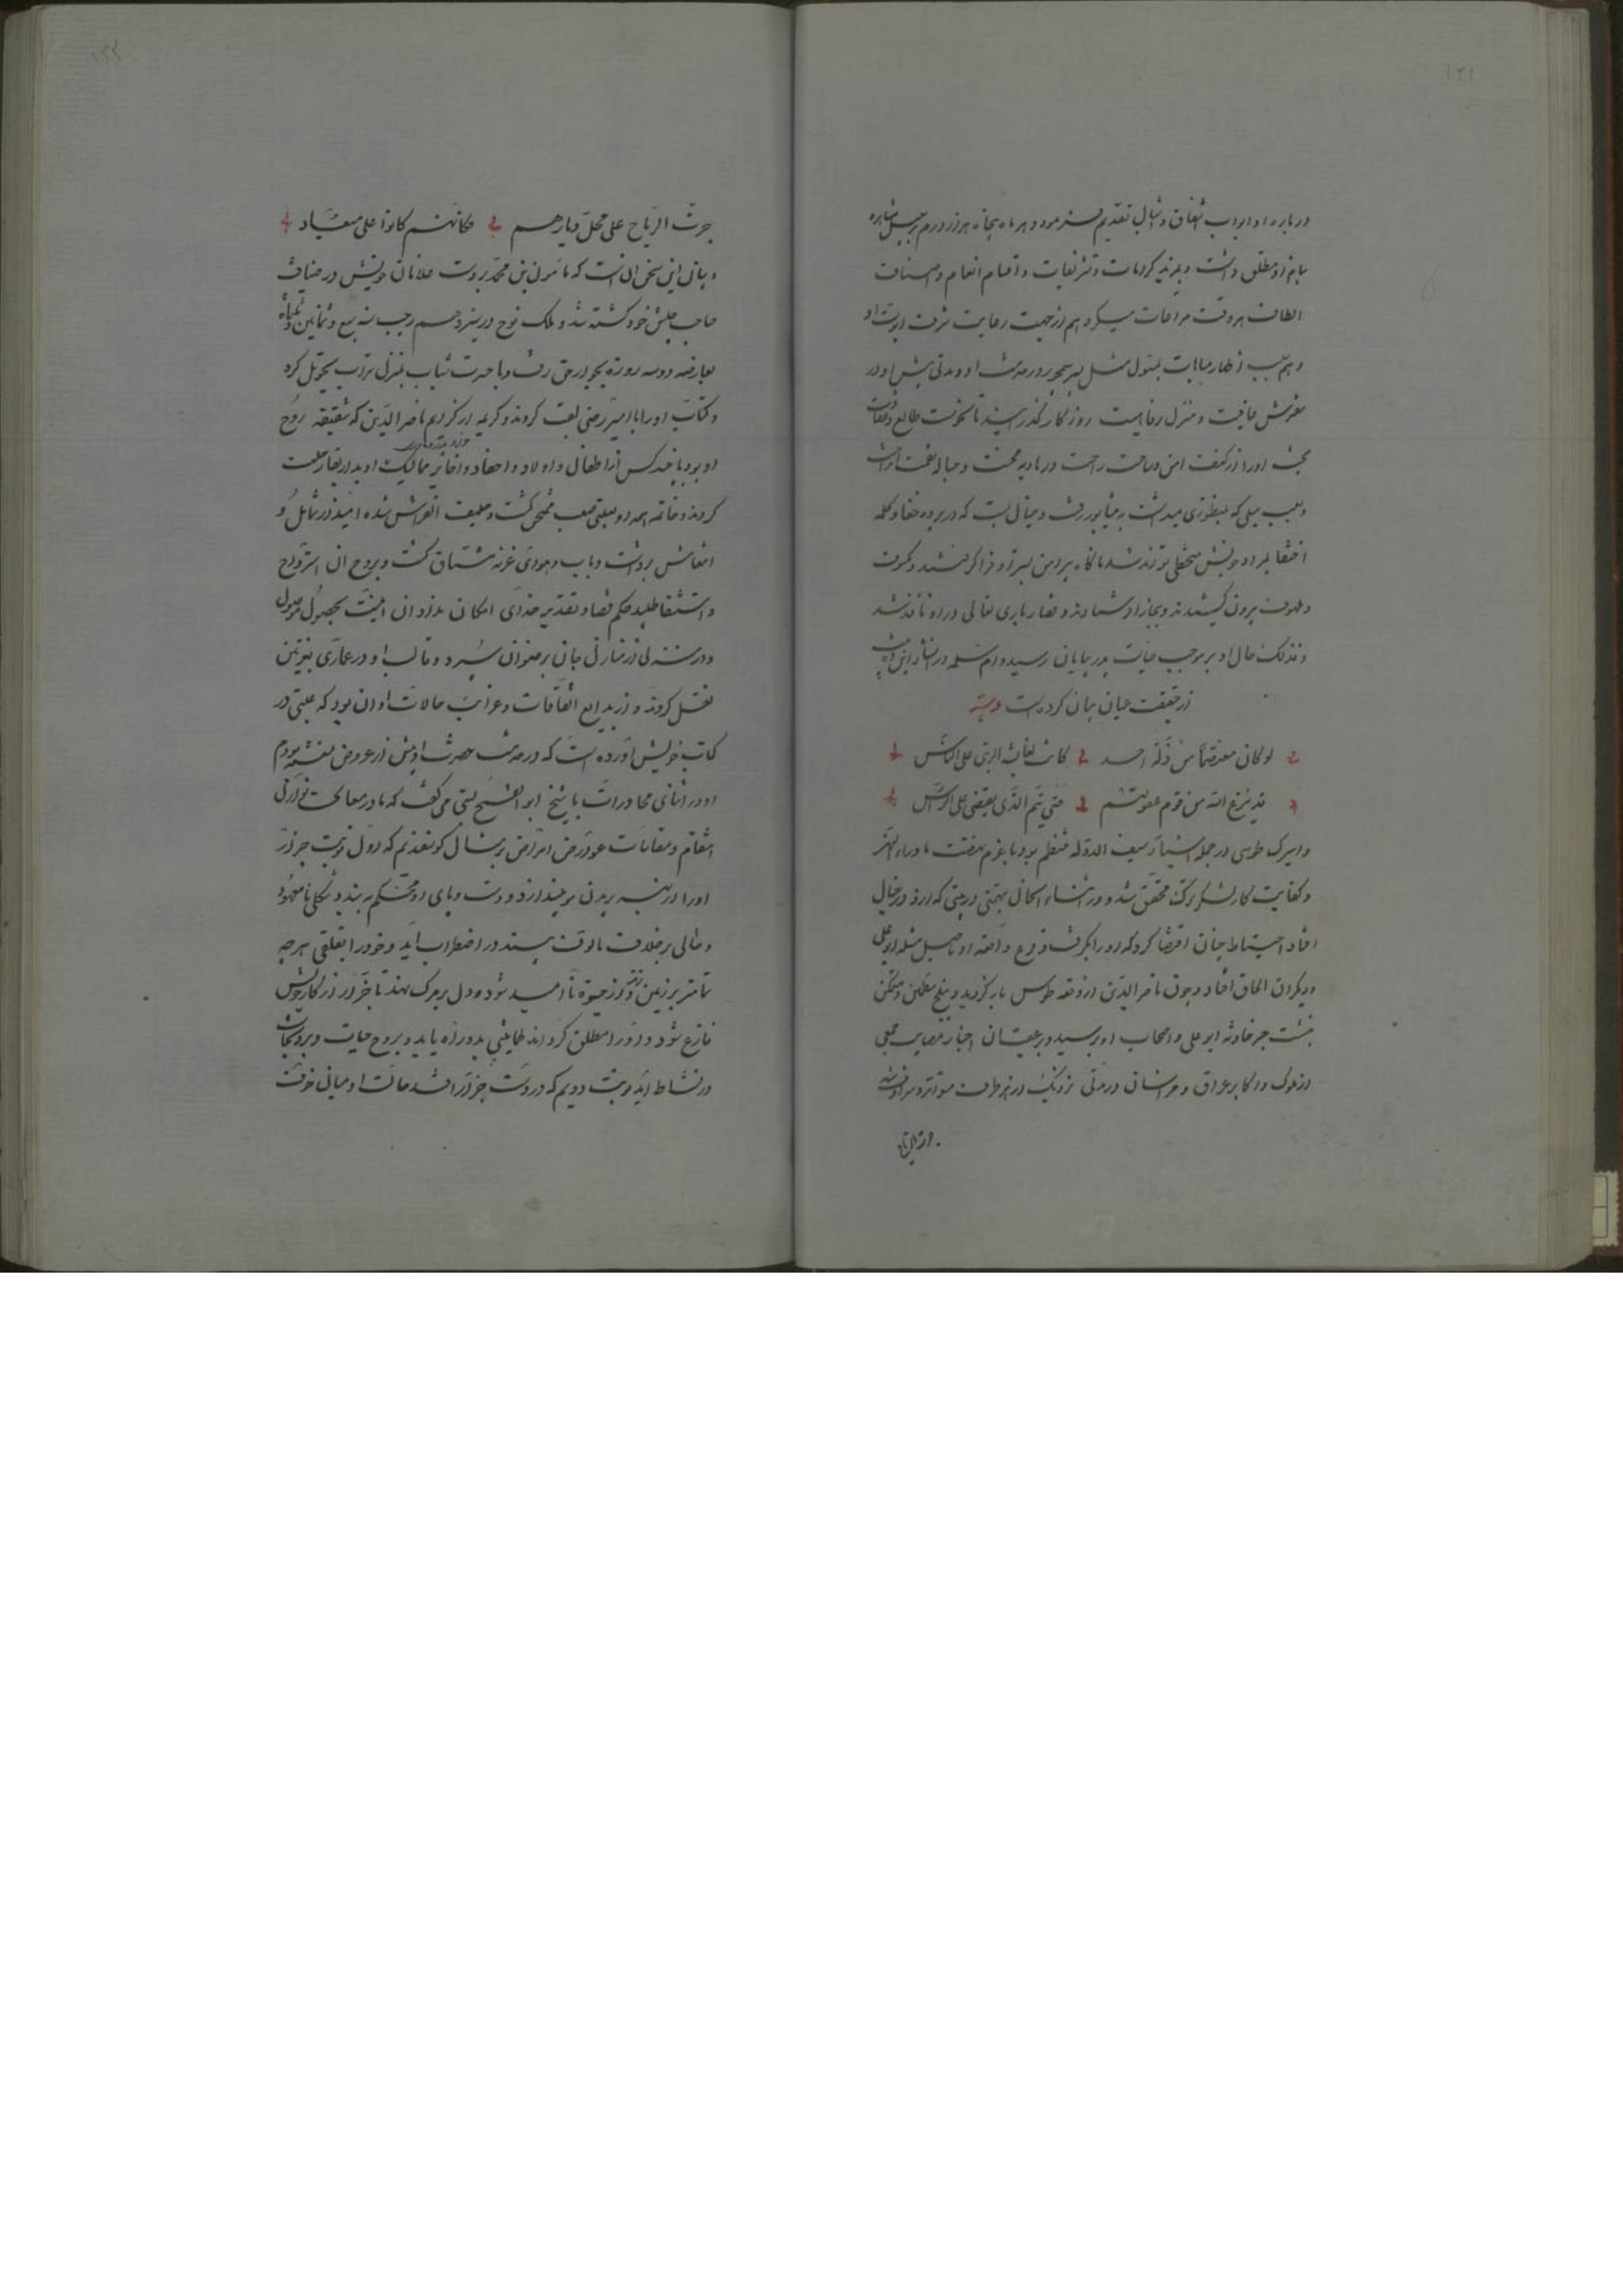 ۱۲۱
درباره او ابواب اشفاق و اشبال تقدیم فرمود و هر ماه پنجاه هزار درم بر سبیل مشاهره
بنام او مطلق داشت و بمزید کرامات و تشریفات و اقسام انعام و اصناف
الطاف هر وقت مراعات میکرد هم از جهت رعایت شرف ابوت او
و هم بسبب اظهار مباهات بمثول مثل پسر سیمجور در خدمت او و مدتی پیش او در
مفرش عافیت و منزل رفاهیت روزگار گذرانید تا نحوست طالع و
بخت او را از کنف امن و ساحت راحت در بادیه محنت و حباله نقمت انداخت
و بسبب میلی که بمنظوری میداشت به نیشابور رفت و خیال بست که در پرده خفا و کله
اختفا بمراد خویش متحظی تواند شد ناگاه پیرامن بستر او فرا گرفتند و
و ملهوف بیرون کشیدند و ببخارا فرستادند و قضاء باری تعالی در او نافذ شد
و فذلک حال او بر موجب حیات پدر بپایان رسید و ام سلمه در انشاء این دو بیت
از حقیقت عیان بیان کرده است عربیة
لو کان معتصما من زلة احد کانت لعایشة الرتبی علی الناس
قد ینزع الله من قوم عقولهم حتی یتم الذی یقضی علی الراس
و امیرک طوسی در جمله اشیاع سیف الدوله منتظم بود تا عزم نهضت ماوراء النهر
و کفایت کار لشکر ترک محقق شد و در اثناء الحال بتهمتی و ریبتی که ازو در خیال
افتاد احتیاط چنان اقتضا کرد که او را بگرفت و فرع واقعه او باصل مسئله ابو علی
و دیگران الحاق افتاد و چون ناصر الدین از وقعه طوس باز گردید و ببلخ مطمئن و متمکن
بنشست خبر حادثه ابو علی و اصحاب او برسید و بر عقب آن اخبار مصایب جمعی
از ملوک و اکابر عراق و خراسان در مدتی نزدیک از هر طرف متواتر و مترادف شد
۱۲۲
جرت الریاح علی محل دیارهم فکانهم کانوا علی میعاد
و بیان این سخن آن است که مامون بن محمد بر دست غلامان خویش در ضیافت
صاحب جیش خود کشته شد و ملک نوح در سیزدهم رجب سنه سبع و ثمانین و ثلثمائه
بعارضه دو سه روزه بجوار حق رفت و با جدت شباب بمنزل تراب تحویل کرد
و کتاب او را با امیر رضی لقب کردند و کریمه از کرایم ناصر الدین که شقیقه روح
او بود با چند کس از اطفال و اولاد و احفاد و اخایر ممالیک او بدار بقا رحلت
کردند و خانه همه در و بعلتی صعب ممتحن گشت و از شمایل و
انفاس برداشت و بآب و هوای غزنه مشتاق گشت و بروح آن استرواح
و استشفا طلبید حکم قضا و تقدیر خدای امکان نداد آن امنیت بحصول موصول
و در منزلی از منازل جان برضوان سپرد و قالب او در عماری بغزنین
نقل کردند و از بدایع اتفاقات و غرایب حالات او آن بود که عتبی در
کتاب خویش آورده است که در خدمت حضرت او پیش از عروض بودم
او در اثنای محاورات با شیخ ابو الفتح بستی می گفت که ما در معالجت نوازل
اسقام و مقاسات عوارض امراض بر مثال گوسفندیم که اول نوبت جزار
او را از بهر پشم بریدن بر زمین اندازد و دست و پای او محکم به بندد و شکلی نا معهود
و حالی بر خلاف مالوف بیند در اضطراب آید و خود را بقلقی هر چه
تمامتر بر زمین زند و از حیوة نا امید شود و دل بر مرگ نهد تا جزار از کار خویش
فارغ شود و او را مطلق گرداند طمانینتی بدو راه یابد و بروح حیات و برد نجات
در نشاط آید و نوبت دویم که در دست جزار افتد حالت او میان خوف